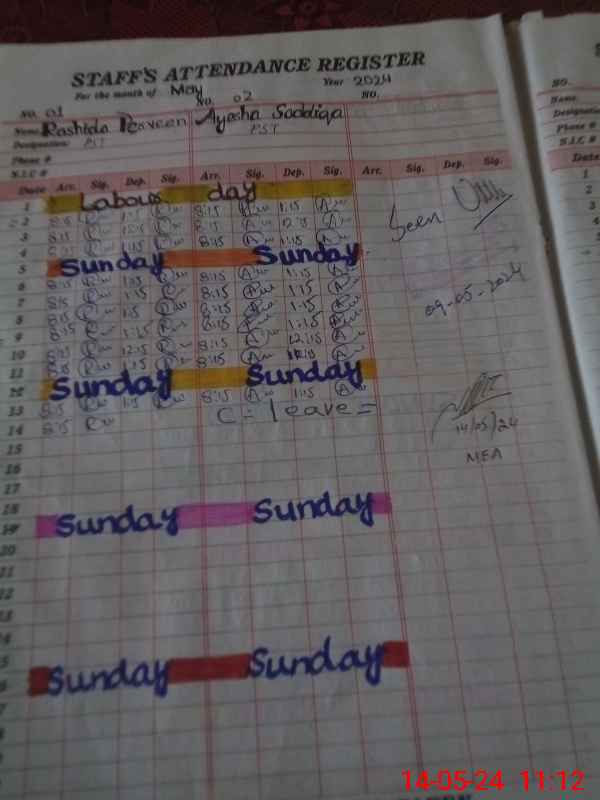 STAFF'S ATTENDANCE REGISTER
For the month of May Year 2024
NO. 01 NO. 02 NO.
Name Rashida Perveen Ayesha Saddiqa
Designation: PST PST
Phone #
N.I.C #
Date Arr. Sig. Dep. Sig. Arr. Sig. Dep. Sig. Arr. Sig. Dep. Sig.
1 Labour day
2 8:15 1:15 8:15 1:15
3 8:15 8:15 12:15
4 8:15 1:15 8:15 1:15
5 Sunday Sunday
6 8:15 1:15 8:15 1:15
7 8:15 1:15 8:15 1:15
8 8:15 1:15 8:15 1:15
9 8:15 1:15 8:15 1:15
10 8:15 12:15 8:15 12:15
11 8:15 1:15 8:15
12 Sunday Sunday
13 8:15 1:15 8:15 1:15
14 8:15 C = leave =
15
16
17
18
19 Sunday Sunday
20
21
22
Sunday Sunday
Seen
09-05-2024
14/05/24
MEA
NO.
Name
Designation
Phone #
N.I.C #
Date
1
2
3
4
14-05-24 11:12